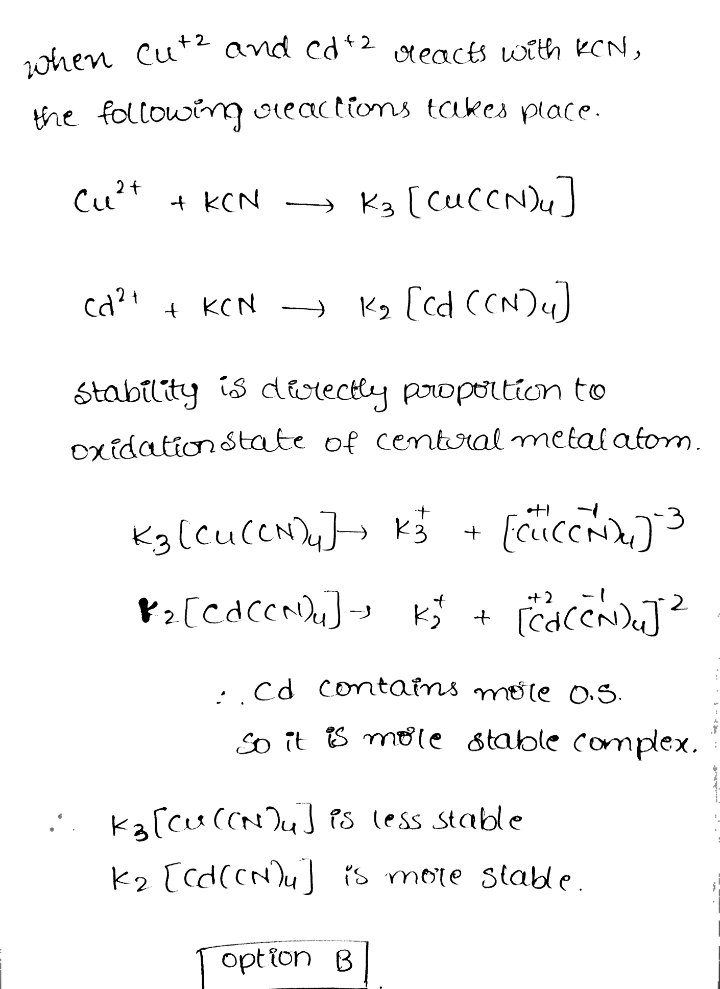 when Cu+2 and Cd+2 reacts with KCN,
the following reactions takes place.
Cu2+ + KCN → K3[Cu(CN)4]
Cd2+ + KCN → K2[Cd(CN)4]
stability is directly proportion to
oxidation state of central metal atom.
K3[Cu(CN)4] → K3+ + [Cu+1(CN-1)4]-3
K2[Cd(CN)4] → K2+ + [Cd+2(CN-1)4]-2
∴ Cd contains more O.S.
So it is more stable complex.
∴ K3[Cu(CN)4] is less stable
K2[Cd(CN)4] is more stable.
option B